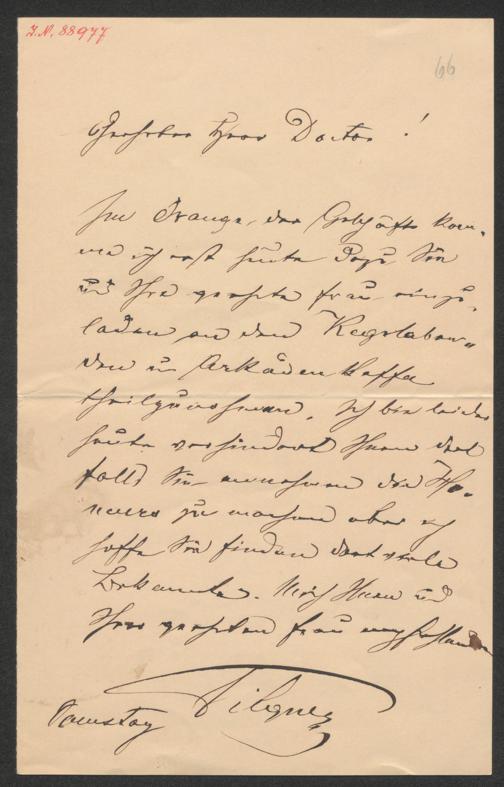 I.N. 88977
66
Geehrter Herr Doctor!
Im Drange der Geschäfte kom-
me ich erst heute dazu Sie
und Ihre geehrte Frau einzu-
laden an den Kegelaben-
den im Arkaden Kaffe
theilzunehmen. Ich bin leider
heute verhindert Ihnen dort
falls Sie annehmen die Ho-
neurs zu machen aber ich
hoffe Sie finden dort viele
Bekannte. Mich Ihnen und
Ihrer geehrten Frau empfehlend
Tilgner
Samstag